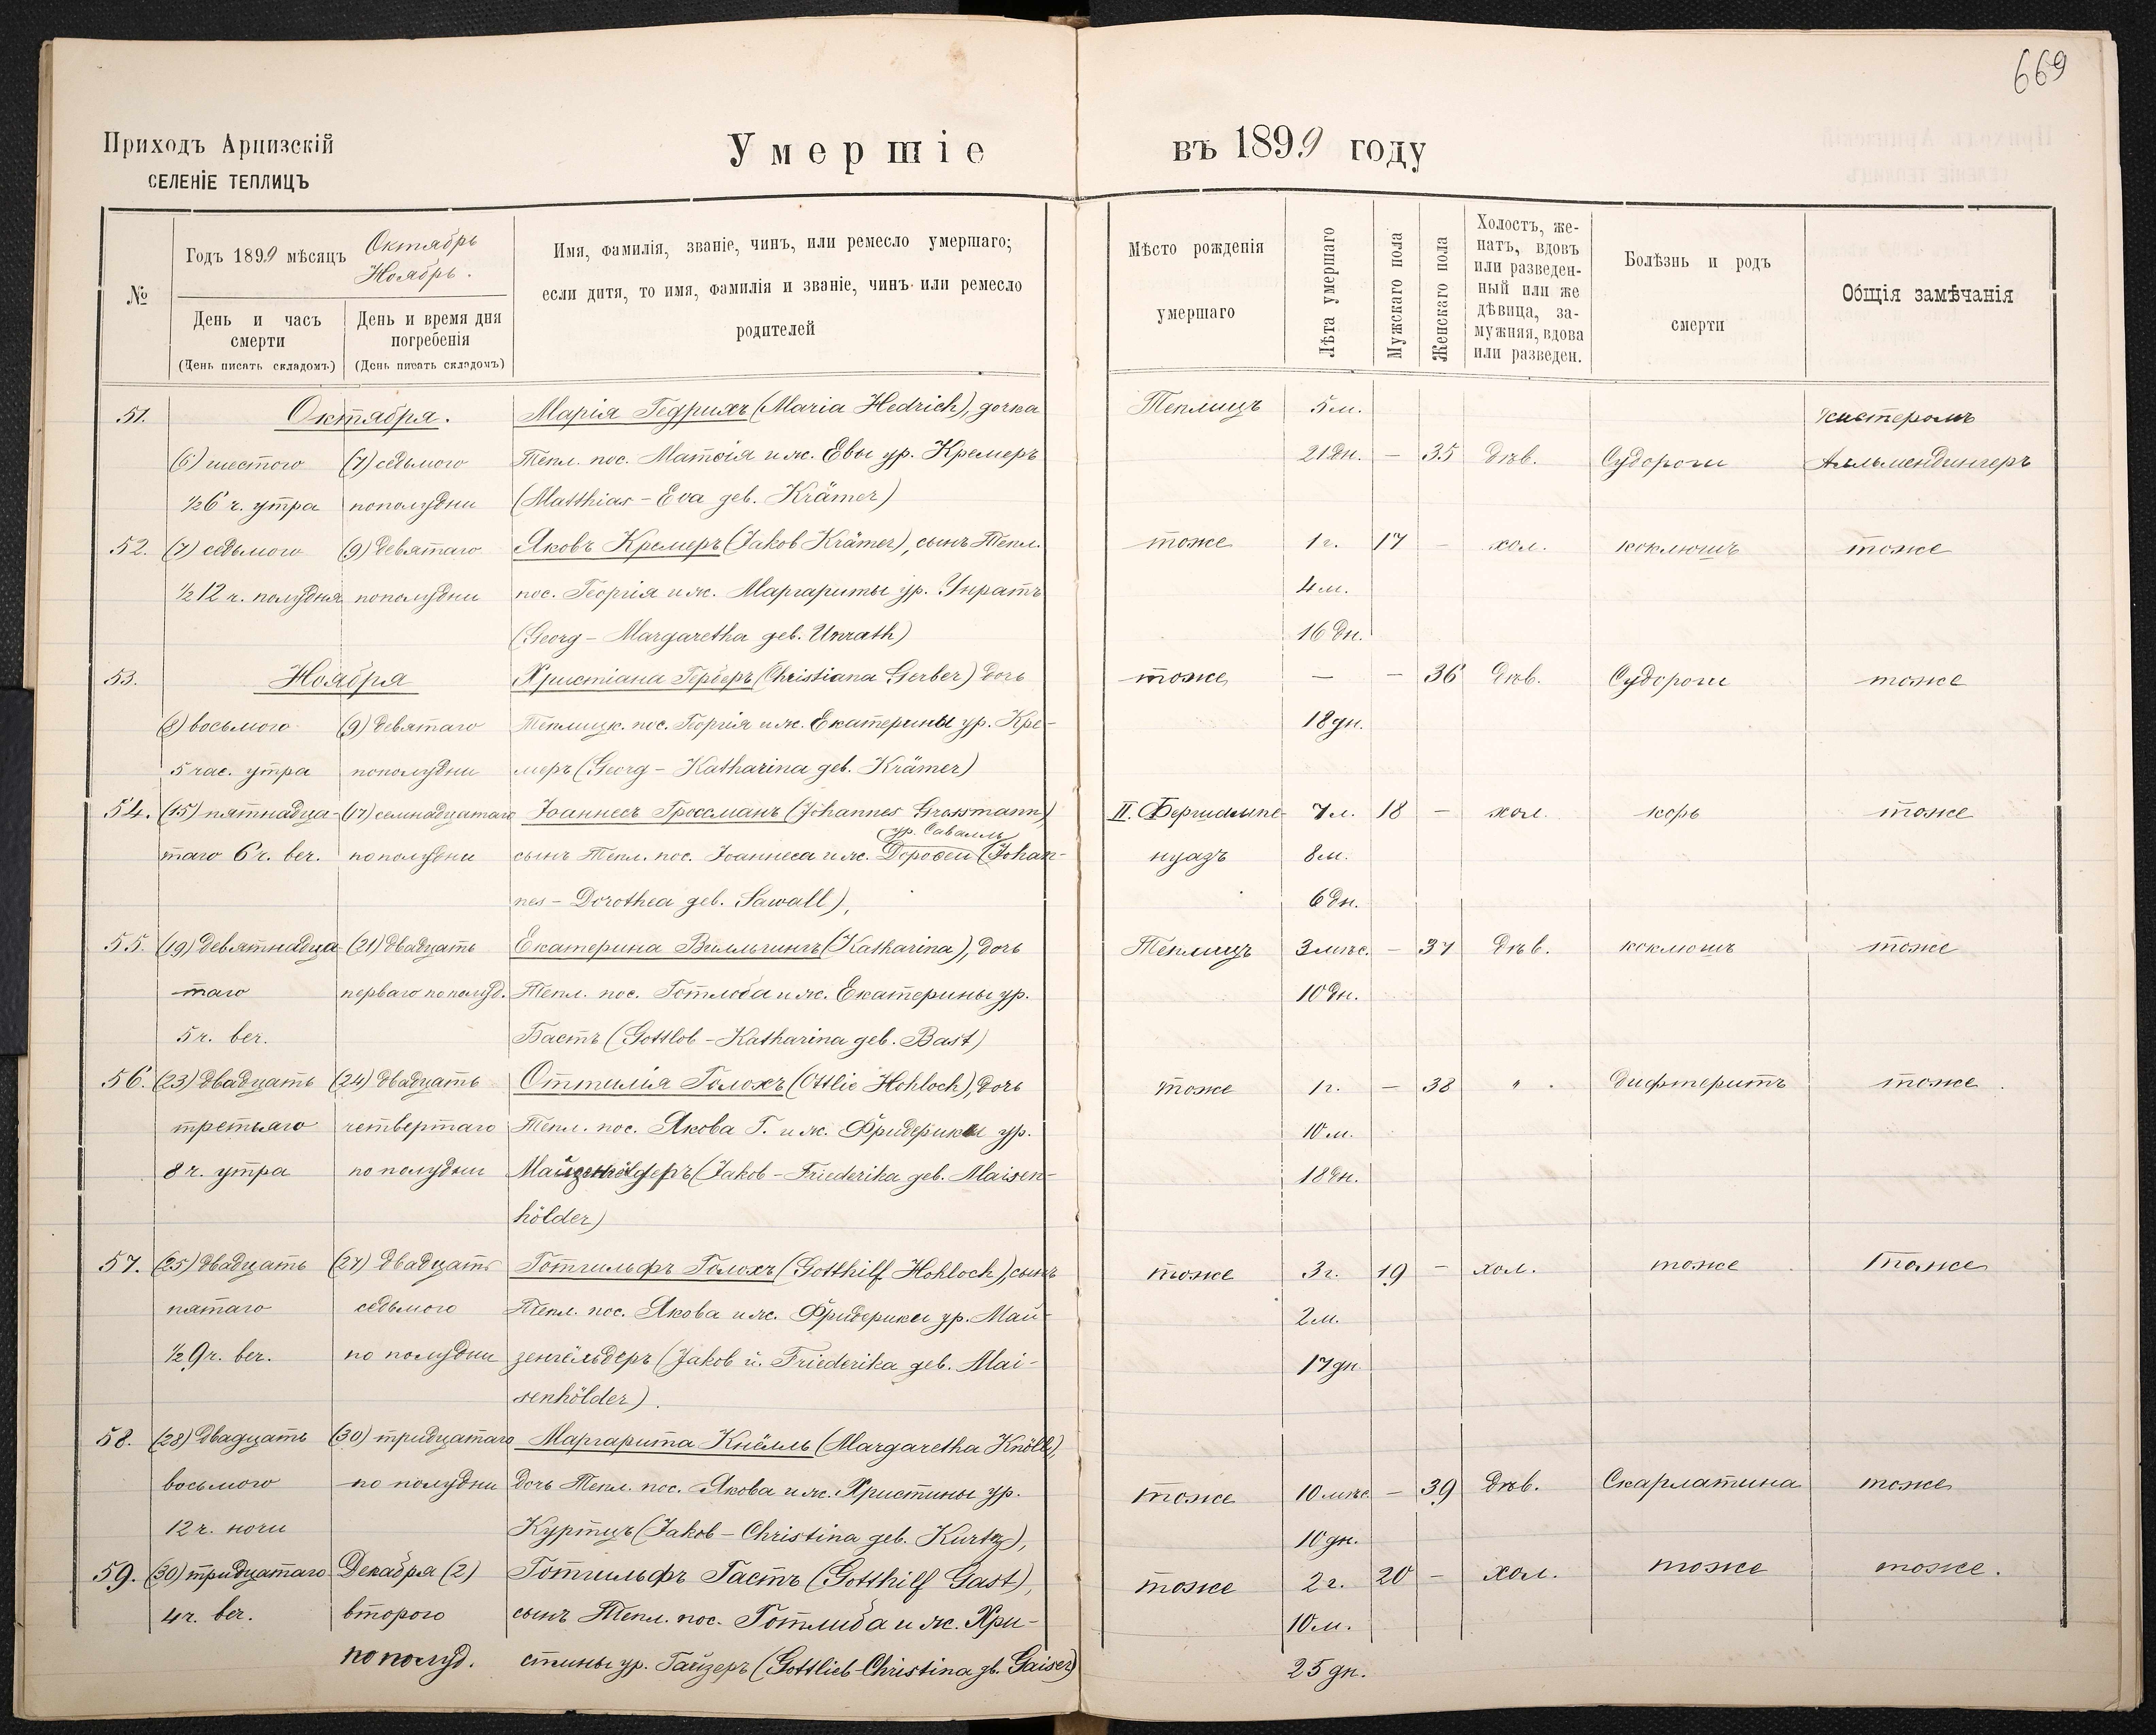 669
Приходъ Арцизскій
СЕЛЕНІЕ ТЕПЛИЦЪ
Умершіе въ 1899 году
№
Годъ 1899 мѣсяцъ Октябрь
Ноябрь.
День и часъ смерти
(День писать складомъ)
День и время дня погребенія
(День писать складомъ)
Имя, фамилія, званіе, чинъ, или ремесло умершаго;
если дитя, то имя, фамилія и званіе, чинъ или ремесло
родителей
Мѣсто рожденія
умершаго
Лѣта умершаго
Мужскаго пола
Женскаго пола
Холостъ, же-
натъ, вдовъ
или разведен-
ный или же
дѣвица, за-
мужняя, вдова
или разведен.
Болѣзнь и родъ
смерти
Общія замѣчанія
51. Октября. Марія Гедрихъ (Maria Hedrich), дочка Теплицъ 5 м. Кистеромъ
(6) шестого (7) седьмого Тепл. пос. Матѳія и ж. Евы ур. Кремеръ 21 дн. — 35 дѣв. Судороги Алльмендингеръ
½6 ч. утра пополудни (Matthias – Eva geb. Krämer)
52. (7) седьмого (9) девятаго Яковъ Кремеръ (Jakob Krämer), сынъ Тепл. тоже 1 г. 17 — хол. коклюшъ тоже
½12 ч. полудня пополудни пос. Георгія и ж. Маргариты ур. Унратъ 4 м.
(Georg – Margaretha geb. Unrath) 16 дн.
53. Ноября Христіана Герберъ (Christiana Gerber) дочь тоже — — 36 дѣв. Судороги тоже
(8) восьмого (9) девятаго Теплицк. пос. Георгія и ж. Екатерины ур. Кре- 18 дн.
5 час. утра пополудни меръ (Georg – Katharina geb. Krämer)
54. (15) пятнадца- (17) семнадцатаго Іоаннесъ Гроссманъ (Johannes Grossmann) II. Фершампе- 7 л. 18 — хол. корь тоже
ур. Савалль
таго 6 ч. веч. пополудни сынъ Тепл. пос. Іоаннеса и ж. Доротеи (Johan- нуазъ 8 м.
nes – Dorothea geb. Sawall), 6 дн.
55. (19) девятнадца- (21) двадцать Екатерина Вильгингъ (Katharina), дочь Теплицъ 3 мѣс. — 37 дѣв. коклюшъ тоже
таго перваго пополуд. Тепл. пос. Готлоба и ж. Екатерины ур. 10 дн.
5 ч. веч. Бастъ (Gottlob – Katharina geb. Bast)
56. (23) двадцать (24) двадцать Оттилія Голохъ (Ottlie Hohloch), дочь тоже 1 г. — 38 " дифтеритъ тоже
третьяго четвертаго Тепл. пос. Якова Г. и ж. Фридерики ур. 10 м.
8 ч. утра по полудни (Jakob – Friederika geb. Maisen- 18 дн.
hölder)
57. (25) двадцать (27) двадцать Готгильфъ Голохъ (Gotthilf Hohloch), сынъ тоже 3 г. 19 — хол. тоже тоже
пятаго седьмого Тепл. пос. Якова и ж. Фридерики ур. Май- 2 м.
½9 ч. веч. по полудни зенгёльдеръ (Jakob u. Friederika geb. Mai- 17 дн
senhölder).
58. (28) двадцать (30) тридцатаго Маргарита Кнёлль (Margaretha Knöll),
восьмого по полудни дочь Тепл. пос. Якова и ж. Христины ур. тоже 10 мѣс. — 39 дѣв. Скарлатина тоже
12 ч. ночи Куртцъ (Jakob – Christina geb. Kurtz), 10 дн.
59. (30) тридцатаго Декабря (2) Готгильфъ Гастъ (Gotthilf Gast), тоже 2 г. 20 — хол. тоже тоже.
4 ч. веч. второго сынъ Тепл. пос. Готлиба и ж. Хри- 10 м.
по полуд. стины ур. Гайзеръ (Gottlieb-Christina gb. Gaiser) 25 дн.